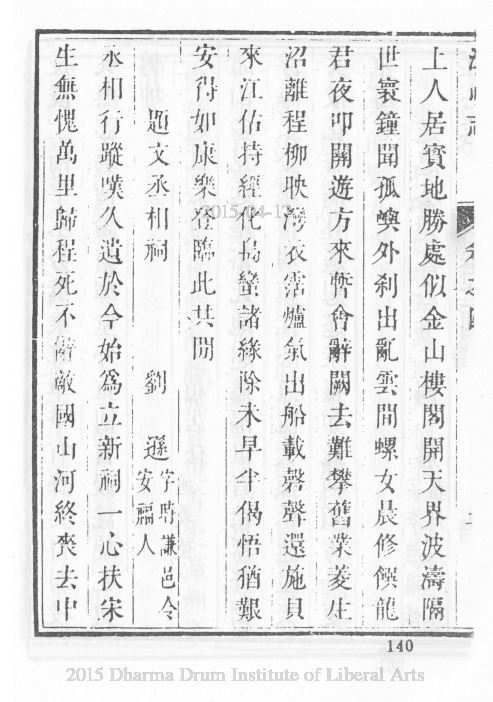 上人居寳地勝處似金山樓閣開天界波濤隔
世寰鐘聞孤嶼外刹出亂雲間螺女晨修饌龍
君夜叩關遊方來暫會辭闕去難攀舊業菱生
沼離程柳映灣衣霑爐氣出船載磬聲還施貝
來江估持經化島蠻諸緣除未早半偈悟猶艱
安得如康樂登臨此共閒
題文丞相祠 劉遜 字時謙邑令安福人
丞相行蹤嘆久遺於今始爲立新祠一心扶宋
生無愧萬里歸程死不辭敵國山河終喪去中
2015/04/13
140
2015 Dharma Drum Institute of Liberal Arts